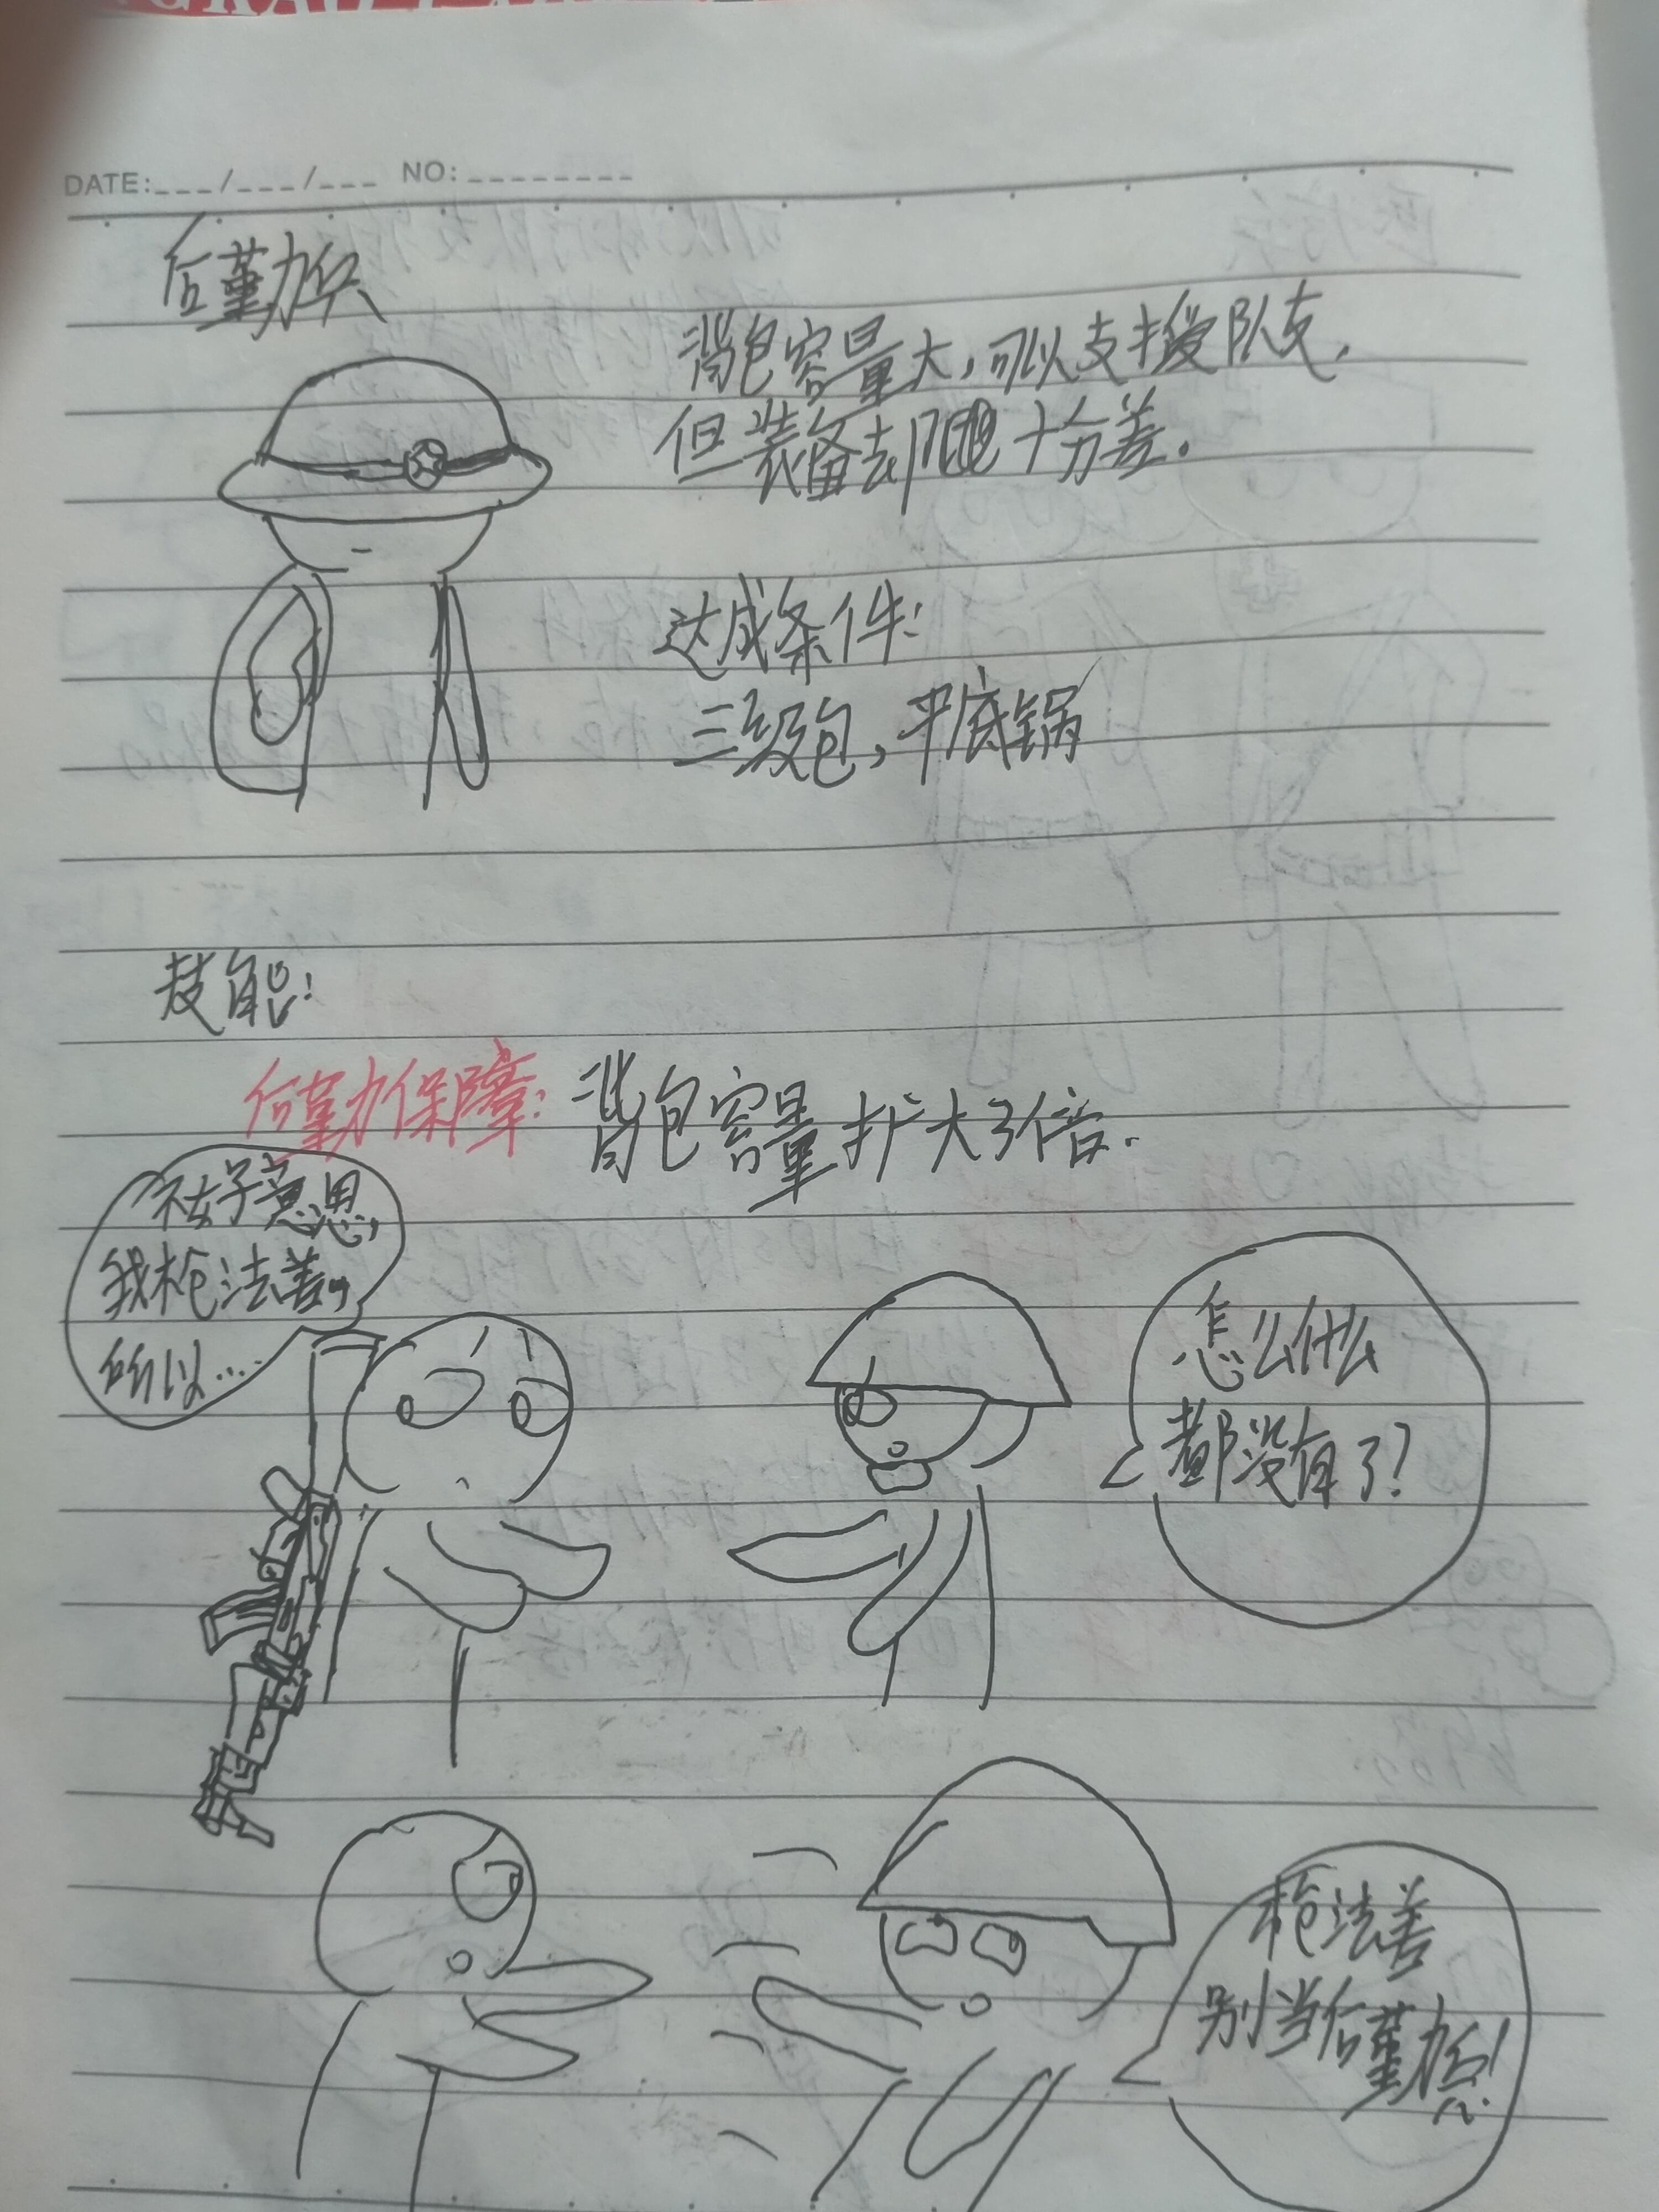 DATE:___/___/___ NO:________
后勤兵
背包容量大,可以支援队友,
但装备却十分差.
达成条件:
三级包,平底锅
技能:
后勤保障:背包容量扩大3倍.
不好意思,
我枪法差,
所以....
怎么什么
都没有了?
枪法差
别当后勤兵!